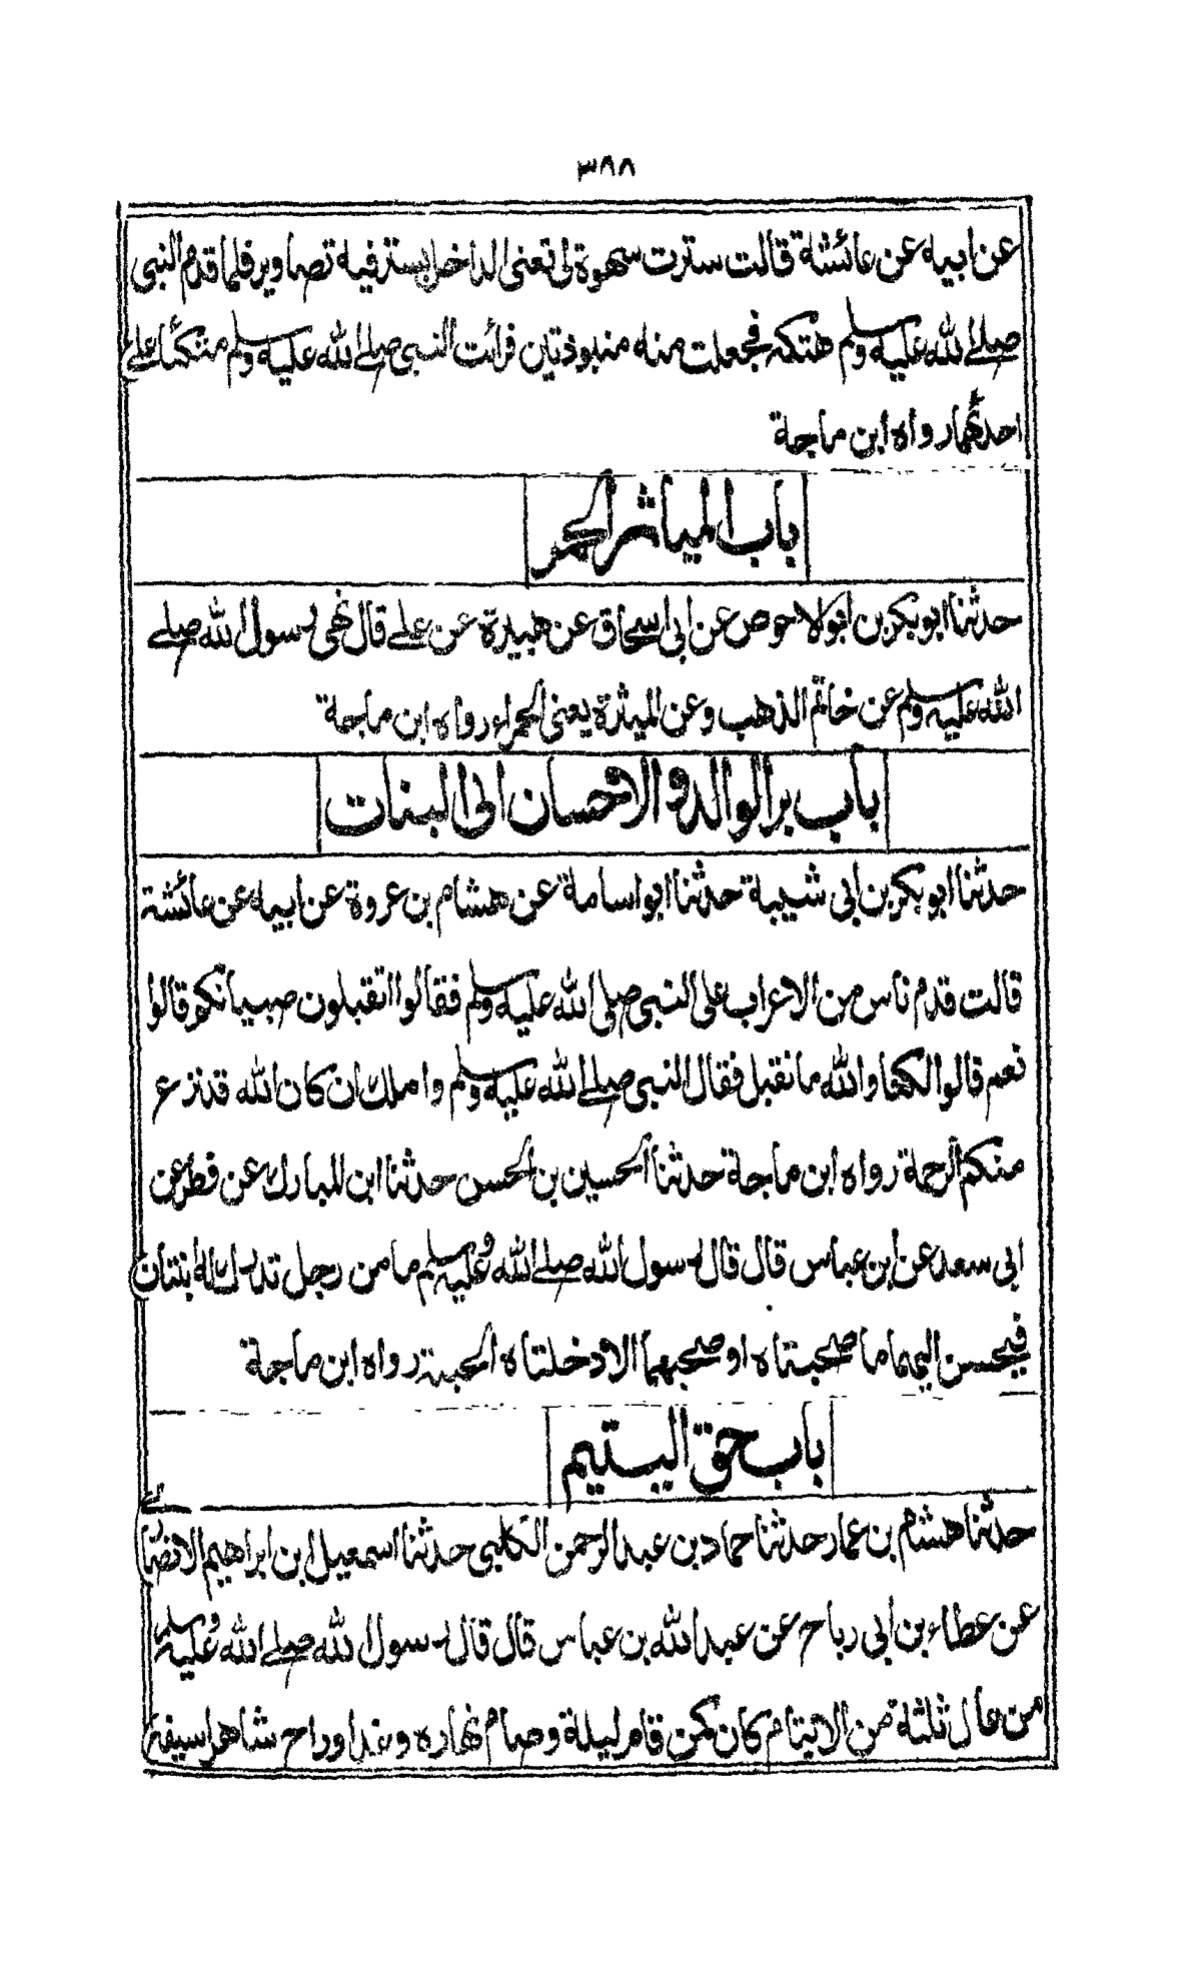 ٣٨٨
عن ابيه عن عائشة قالت سترت سهوة لي تعني الداخل بستر فيه تصاوير فلما قدم النبي
صلے الله عليه وسلم هتكه فجعلت منه منبوذتين فرائت النبي صلے الله عليه وسلم متكئا علے
احدٰهما رواه ابن ماجة
باب المياثر الحمر
حدثنا ابو بكر بن ابو الاحوص عن ابي اسحاق عن هبيرة عن علے قال نهى رسول الله صلے
الله عليه وسلم عن خاتم الذهب وعن الميثرة يعني الحمراء رواه ابن ماجة
باب بر الوالد والاحسان الى البنات
حدثنا ابو بكر بن ابي شيبة حدثنا ابو اسامة عن هشام بن عروة عن ابيه عن عائشة
قالت قدم ناس من الاعراب على النبي صلى الله عليه وسلم فقالوا اتقبلون صبيانكم قالوا
نعم قالوا لكنا والله ما نقبل فقال النبي صلے الله عليه وسلم واملك ان كان الله قد نزع
منكم الرحمة رواه ابن ماجة حدثنا الحسين بن الحسن حدثنا ابن المبارك عن فطر عن
ابي سعد عن ابن عباس قال قال رسول الله صلے الله عليه وسلم ما من رجل تدرك له ابنتان
فيحسن اليهما ما صحبتاه او صحبهما الا دخلتاه الجنة رواه ابن ماجة
باب حق اليتيم
حدثنا هشام بن عمار حدثنا حماد بن عبد الرحمن الكلبي حدثنا اسمعيل ابن ابراهيم الانصاري
عن عطاء بن ابي رباح عن عبد الله بن عباس قال قال رسول الله صلے الله عليه وسلم
من عال ثلثة من الايتام كان كمن قام ليلة وصام نهاره وغدا وراح شاهرا سيفه